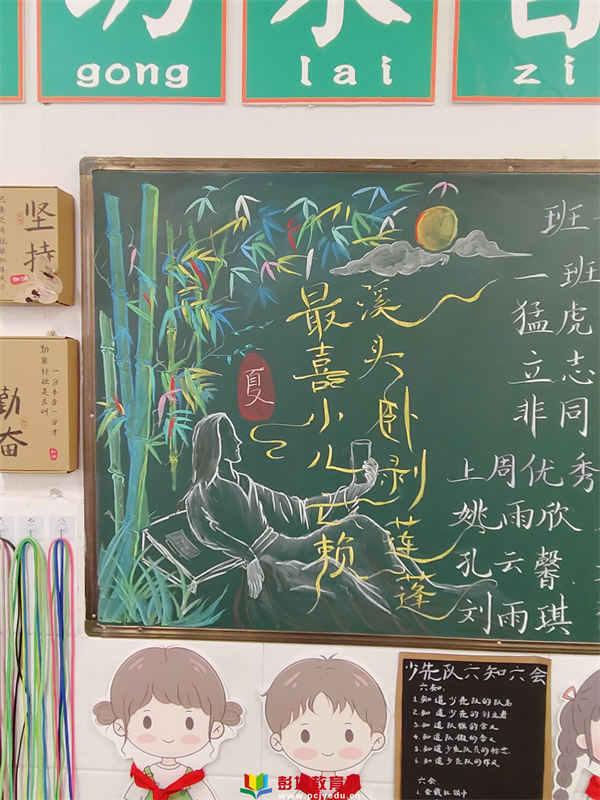 gong
lai
zi
坚持
勤奋
一分辛苦一分才
勤能补拙是良训
最喜小儿亡赖
溪头卧剥莲蓬
夏
班
一班
猛虎
立志
非同
上周优秀
姚雨欣
孔云馨
刘雨琪
七 八
少先队六知六会
六知:
1.知道少先队的队名
2.知道少先的创立者
3.知道队旗的含义
4.知道队徽的含义
5.知道少先队员的标志
6.知道少先队的作风
六会:
www.pcjyedu.cn